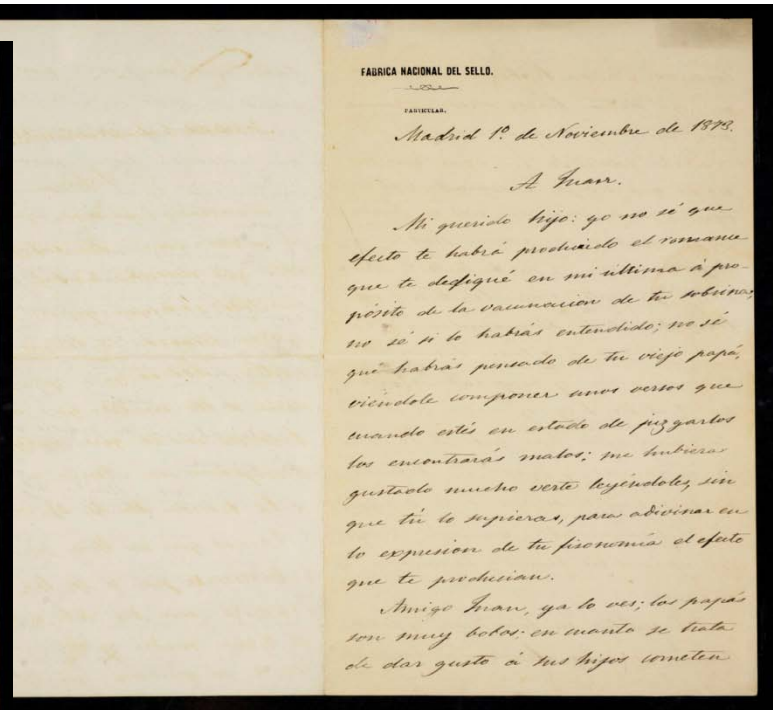 FABRICA NACIONAL DEL SELLO.
PARTICULAR.
Madrid 1º de Noviembre de 1878.
A Juan.
Mi querido hijo: yo no sé que
efecto te habrá producido el romance
que te dediqué en mi última á pro-
pósito de la vacunacion de tu sobrina;
no sé si lo habrás entendido; no sé
que habrás pensado de tu viejo papá,
viéndole componer unos versos que
cuando estés en estado de juzgarlos
los encontrarás malos; me hubiera
gustado mucho verte leyéndoles, sin
que tú lo supieras, para adivinar en
la expresion de tu fisonomía el efecto
que te producian.
Amigo Juan, ya lo ves; los papás
son muy bobos: en cuanto se trata
de dar gusto á sus hijos cometen